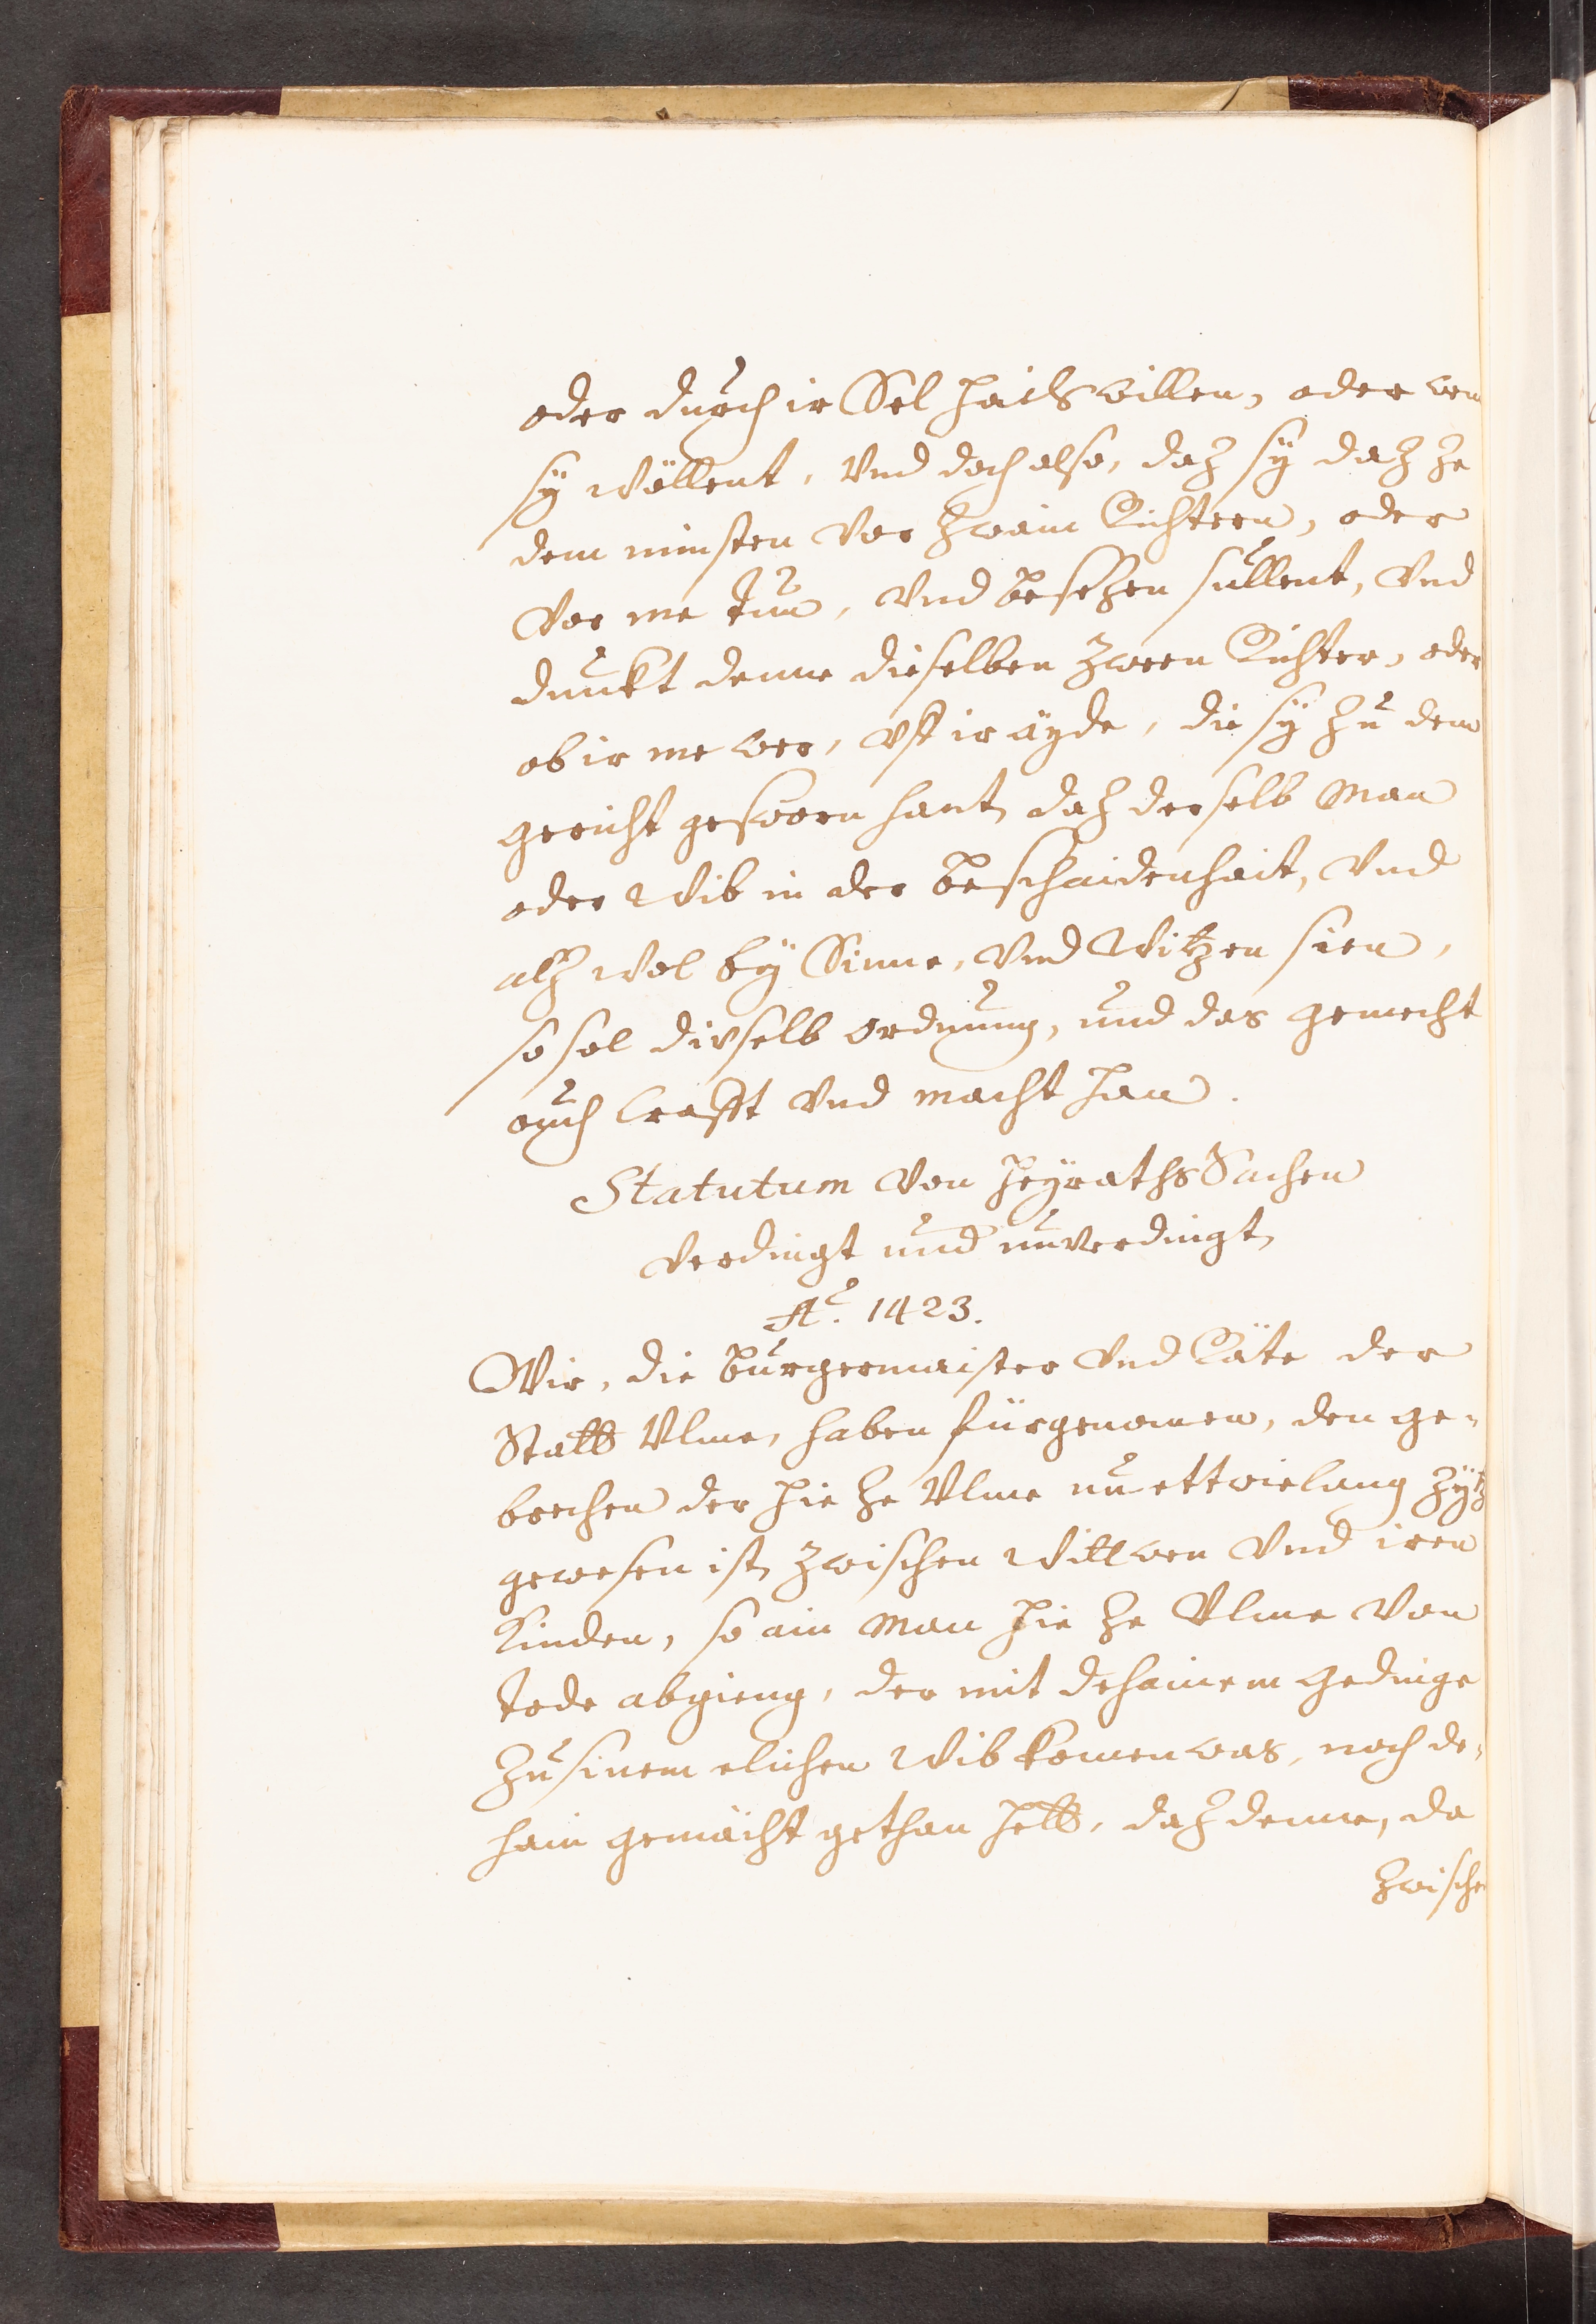 oder durch ir Sel hails willen, oder wem
sÿ wöllent, Vnd doch also, daz sÿ daz ze
dem minsten Vor zwain Richtern, oder
Vor me tun, Vnd besehen sullent, Vnd
dunkt denne dieselben zwen Richter, oder
ob ir me wer, Vff ir ayde, die sÿ zu dem
gericht gesworn hant, daz derselb Man
oder Wib in der beschaidenhait, Vnd
alz wol bÿ Sinne, Vnd Witzen sien,
so sol dieselb ordnung, und das gemecht
ouch Crafft Vnd macht han.
Statutum Von HeÿrathsSachen
Verdingt und unverdingt,
Aº. 1423.
Wir, die burgermaister Vnd Räte der
Statt Vlme, haben fürgenomen, den ge-
brechen der hie ze Vlme nu ettwielang zÿt
gewesen ist, zwischen Wittwen Vnd iren
Kinden, so ain Man hie ze Vlme Von
tode abgieng, der mit dehainem Gedinge
zu sinem elichen Wib komen was, noch de-
hain gemächt gethan hett, daz denne, da
zwische